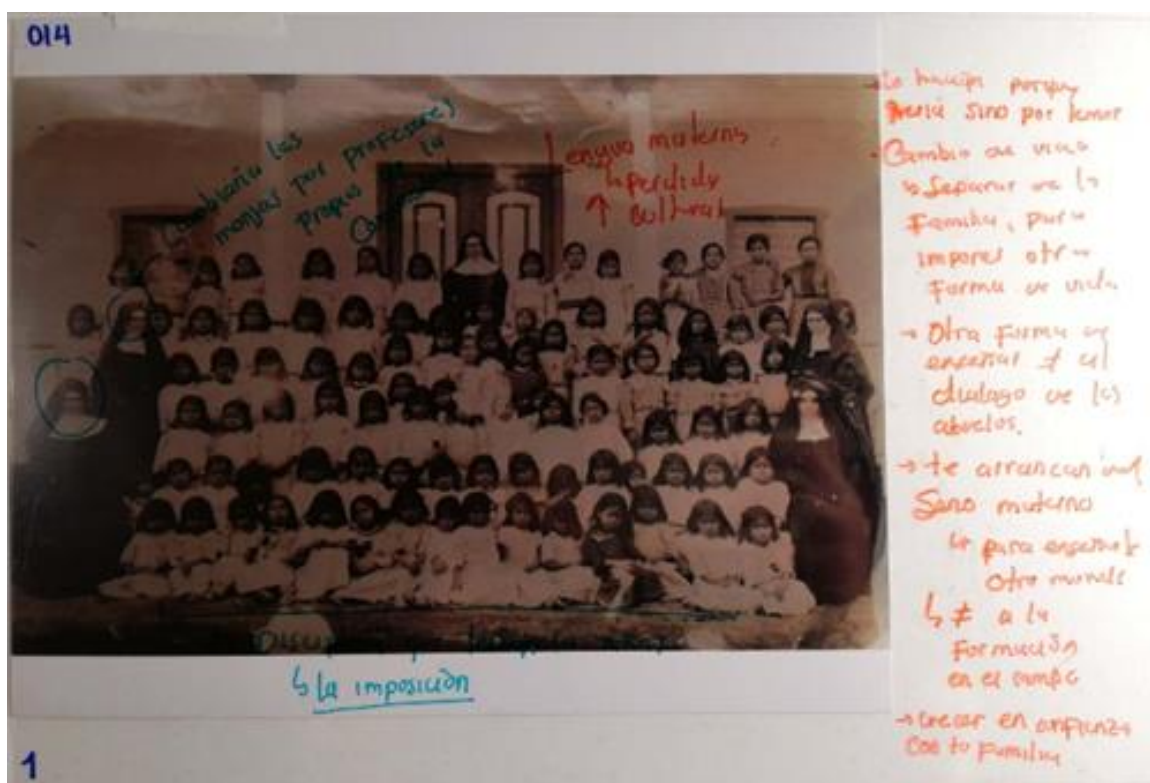 014
Cambiaria las
monjas por profesores
propios de la
Comunidad
Lengua materna
↳ perdida
↑ cultural
→ lo hacían porque
quería sino por temor
- Cambio de vida
↳ Separar de la
Familia, para
imponer otra
Forma de vida
→ Otra forma de
enseñar ≠ al
dialogo de los
abuelos.
→ te arrancan del
Seno materno
↳ para enseñarte
Otro mundo
↳ ≠ a la
Formación
en el campo
→ Crecer en confianza
con tu familia
↳ la imposición
1